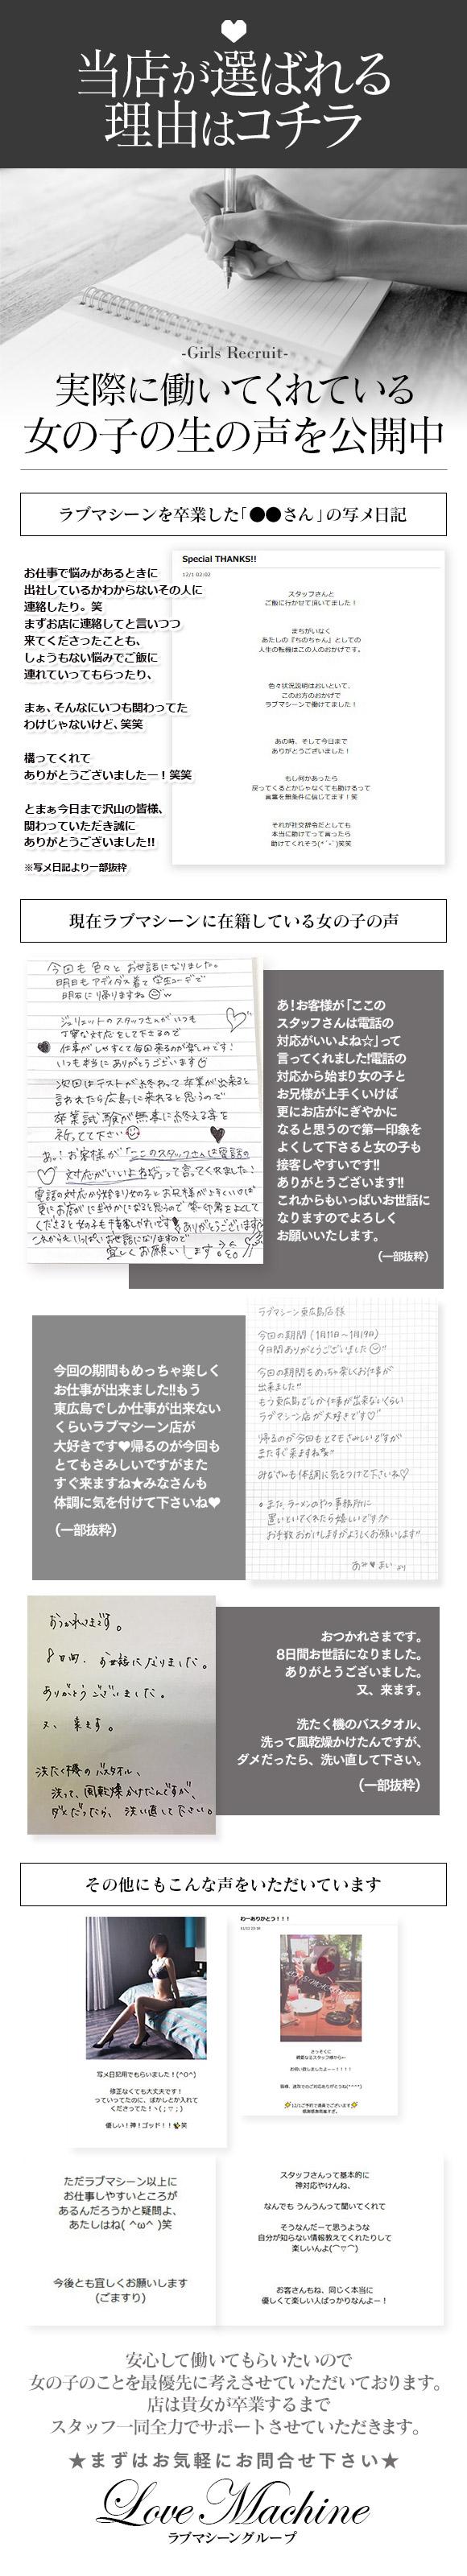 当店が選ばれる
理由はコチラ
-Girls Recruit-
実際に働いてくれている
女の子の生の声を公開中
ラブマシーンを卒業した「●●さん」の写メ日記
お仕事で悩みがあるときに
出社しているかわからないその人に
連絡したり。笑
まずお店に連絡してと言いつつ
来てくださったことも、
しょうもない悩みでご飯に
連れていってもらったり、
まぁ、そんなにいつも関わってた
わけじゃないけど、笑笑
構ってくれて
ありがとうございましたー！笑笑
とまぁ今日まで沢山の皆様、
関わっていただき誠に
ありがとうございました!!
※写メ日記より一部抜粋
Special THANKS!!
12/1 02:02
スタッフさんと
ご飯に行かせて頂いてました！
まちがいなく
あたしの『ちのちゃん』としての
人生の転機はこの人のおかげです。
色々状況説明はおいといて、
このお方のおかげで
ラブマシーンで働けてました！
あの時、そして今日まで
ありがとうございました！
もし何かあったら
戻ってくるとかじゃなくても助けるって
言葉を無条件に信じてます！笑
それが社交辞令だとしても
本当に助けてって言ったら
助けてくれそう(*´-`)笑笑
現在ラブマシーンに在籍している女の子の声
今回も色々とお世話になりました。
明日もアディダス着て学生コーデで
明石に帰りますね
ジュリエットのスタッフさんがいつも
丁寧な対応をして下さるので
仕事がしやすくて毎回来るのが楽しみです！
いつも本当にありがとうございます
次回はテストが終わって卒業が出来ると
言われたら広島に来れると思うので
卒業試験が無事に終える事を
祈ってて下さい
あ。！お客様が「ここのスタッフさんは電話の
対応がいいよね☆」って言ってくれました！
電話の対応から始まり女の子とお兄様が上手くいけば
更にお店がにぎやかになると思うので第一印象をよくして
くださると女の子も接客しやすいです！ありがとうございます
これからもいっぱいお世話になりますので
宜しくお願いします
あ！お客様が「ここの
スタッフさんは電話の
対応がいいよね☆」って
言ってくれました!電話の
対応から始まり女の子と
お兄様が上手くいけば
更にお店がにぎやかに
なると思うので第一印象を
よくして下さると女の子も
接客しやすいです!!
ありがとうございます!!
これからもいっぱいお世話に
なりますのでよろしく
お願いいたします。
（一部抜粋）
今回の期間もめっちゃ楽しく
お仕事が出来ました!!もう
東広島でしか仕事が出来ない
くらいラブマシーン店が
大好きです♥帰るのが今回も
とてもさみしいですがまた
すぐ来ますね★みなさんも
体調に気を付けて下さいね♥
（一部抜粋）
ラブマシーン東広島店様
今回の期間（1月11日〜1月19日）
9日間ありがとうございました
今回の期間もめっちゃ楽しくお仕事が
出来ました!!
もう東広島でしか仕事が出来ないくらい
ラブマシーン店が大好きです♡
帰るのが今回もとてもさみしいですが
またすぐ来ますね
みなさんも体調に気をつけて下さいね♡
また、ラーメンのやつ事務所に
置いといてくれたら嬉しいですが
お手数おかけしますがよろしくお願いします
あみ♥まい より
おつかれさまです。
8日間、お世話になりました。
ありがとうございました。
又、来ます。
洗たく機のバスタオル、
洗って、風乾燥かけたんですが、
ダメだったら、洗い直して下さい。
おつかれさまです。
8日間お世話になりました。
ありがとうございました。
又、来ます。
洗たく機のバスタオル、
洗って風乾燥かけたんですが、
ダメだったら、洗い直して下さい。
（一部抜粋）
その他にもこんな声をいただいています
写メ日記用でもらいました！(^O^)
修正なくても大丈夫です！
っていってたのに、ぼかしとか入れて
くださってた！ヽ(；▽；)
優しい！神！ゴッド！！笑
わーありがとう！！！
さっそくに
綺麗なるスタッフ様から←
お祝い致しましたよーー！！！！
12/1ご予約で満員でございます
感謝感激雨嵐すぎ。
ただラブマシーン以上に
お仕事しやすいところが
あるんだろうかと疑問よ、
あたしはね( ^ω^ )笑
今後とも宜しくお願いします
(ごますり)
スタッフさんって基本的に
神対応やけんね、
なんでも うんうんって聞いてくれて
そうなんだーて思うような
自分が知らない情報教えてくれたりして
楽しいんよ(⌒▽⌒)
お客さんもね、同じく本当に
優しくて楽しい人ばっかりなんよー！
安心して働いてもらいたいので
女の子のことを最優先に考えさせていただいております。
店は貴女が卒業するまで
スタッフ一同全力でサポートさせていただきます。
★まずはお気軽にお問合せ下さい★
Love Machine
ラブマシーングループ